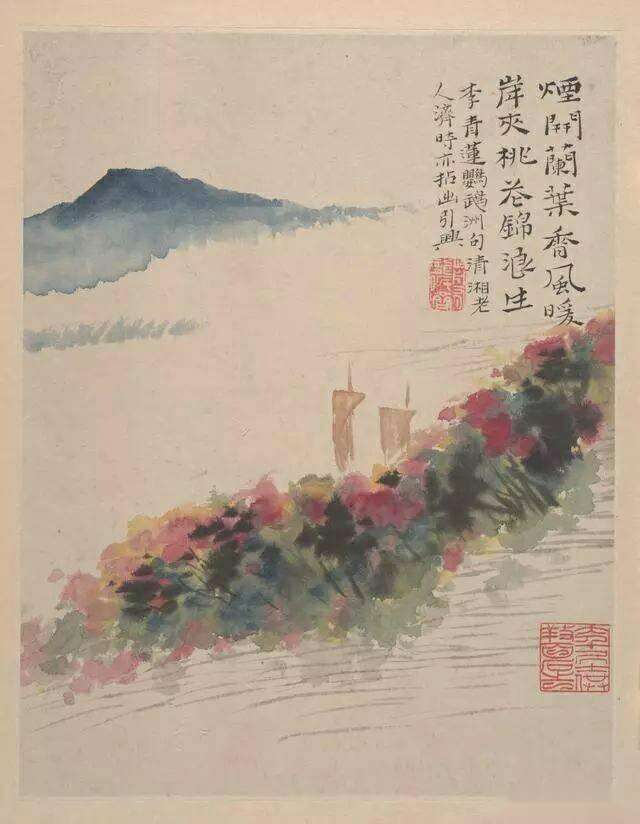 煙開蘭葉香風暖
岸夾桃花錦浪生
李青蓮鸚鵡洲句清湘老
人濟時亦拈出引興